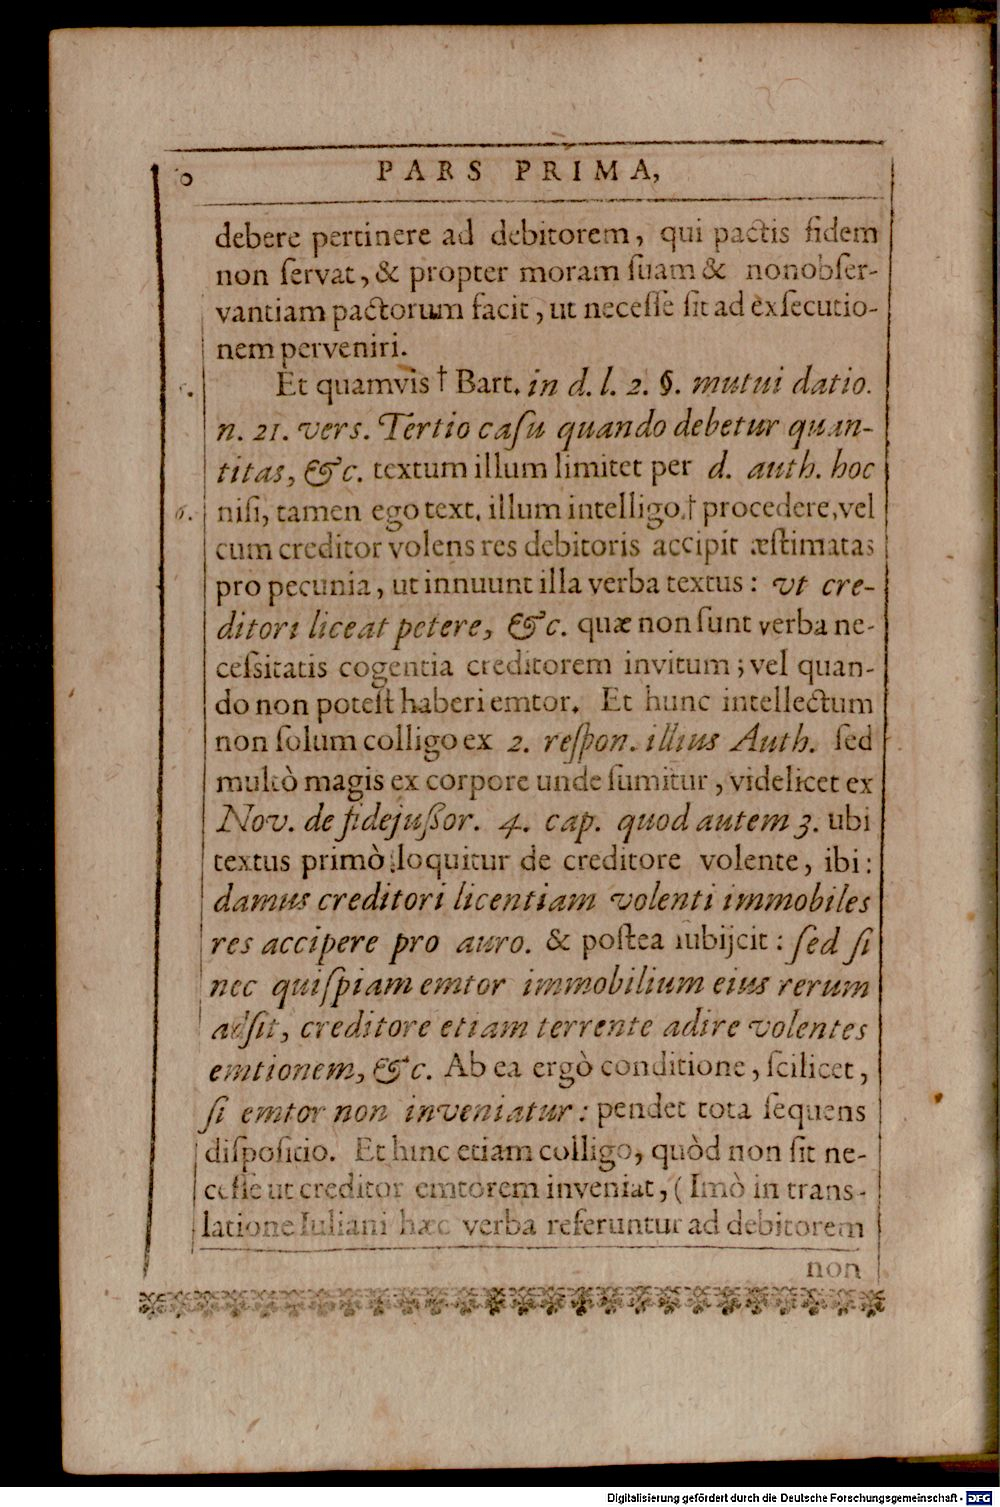 PARS PRIMA,
debere pertinere ad debitorem, qui pactis fidem
non ſervat, & propter moram ſuam & nonobſer-
vantiam pactorum facit, ut neceſſe ſit ad exſecutio-
nem perveniri.
Et quamvis † Bart. in d. l. 2. §. mutui datio.
n. 21. vers. Tertio caſu quando debetur quan-
titas, &c. textum illum limitet per d. auth. hoc
6. niſi, tamen ego text. illum intelligo † procedere, vel
cum creditor volens res debitoris accipit æſtimatas
pro pecunia, ut innuunt illa verba textus: vt cre-
ditori liceat petere, &c. quæ non ſunt verba ne-
ceſsitatis cogentia creditorem invitum; vel quan-
do non poteſt haberi emtor. Et hunc intellectum
non ſolum colligo ex 2. reſpon. illius Auth. ſed
multò magis ex corpore unde ſumitur, videlicet ex
Nov. de fidejußor. 4. cap. quod autem 3. ubi
textus primò loquitur de creditore volente, ibi:
damus creditori licentiam volenti immobiles
res accipere pro auro. & poſtea ſubijcit: ſed ſi
nec quiſpiam emtor immobilium eius rerum
adſit, creditore etiam terrente adire volentes
emtionem, &c. Ab ea ergò conditione, ſcilicet,
ſi emtor non inveniatur: pendet tota ſequens
diſpoſitio. Et hinc etiam colligo, quòd non ſit ne-
ceſſe ut creditor emtorem inveniat, (Imò in trans-
latione Iuliani hæc verba referuntur ad debitorem
non
Digitalisierung gefördert durch die Deutsche Forschungsgemeinschaft - DFG